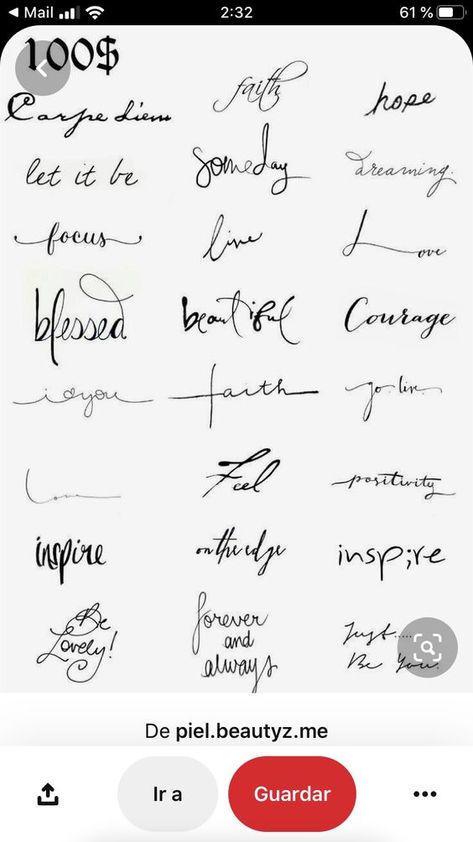 Mail 2:32 61 %
100$
Carpe diem
faith
hope
let it be
someday
dreaming.
focus
live
Love
blessed
beautiful
Courage
i you
faith
go. live.
Love
Feel
positivity
inspire
on the edge
insp;re
Be
Lovely!
forever
and
always
Just.....
Be You.
De piel.beautyz.me
Ir a
Guardar